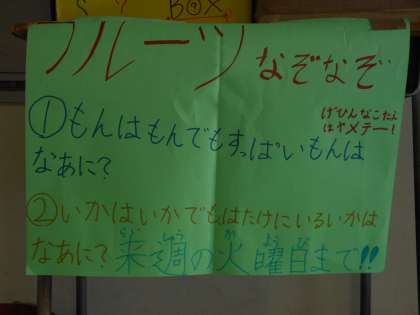 BOX
フルーツなぞなぞ
げひんなこたえ
はヤメテー!
①もんはもんでもすっぱいもんは
なあに?
②いかはいかでもはたけにいるいかは
なあに?来週の火曜日まで!!